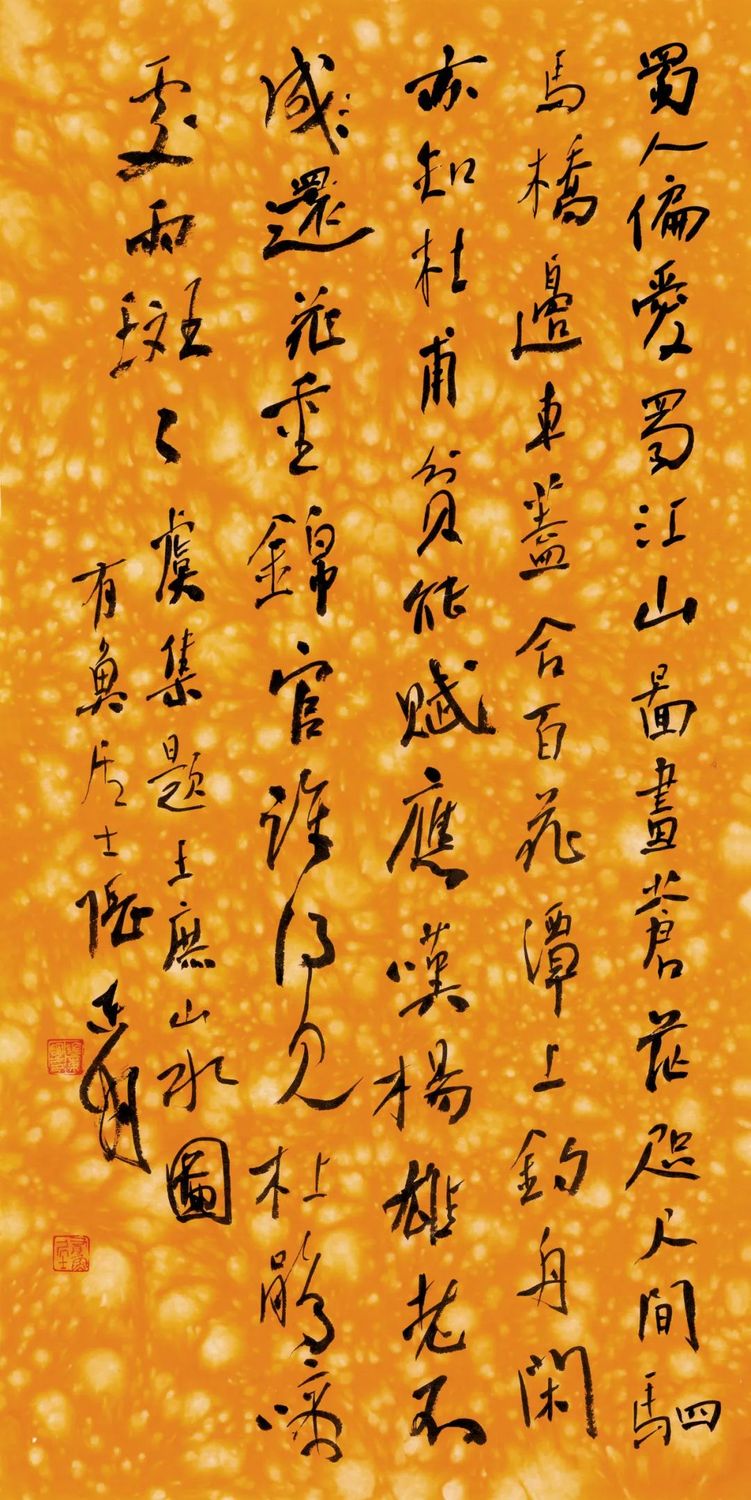 蜀人偏愛蜀江山圖畫蒼茫咫尺間駟
馬橋邊車蓋合百花潭上釣舟閑
亦知杜甫貧能賦應嘆楊雄老不
還花重錦官誰得見杜鵑啼
處雨斑々虞集題王庶山水圖
有魚居士張